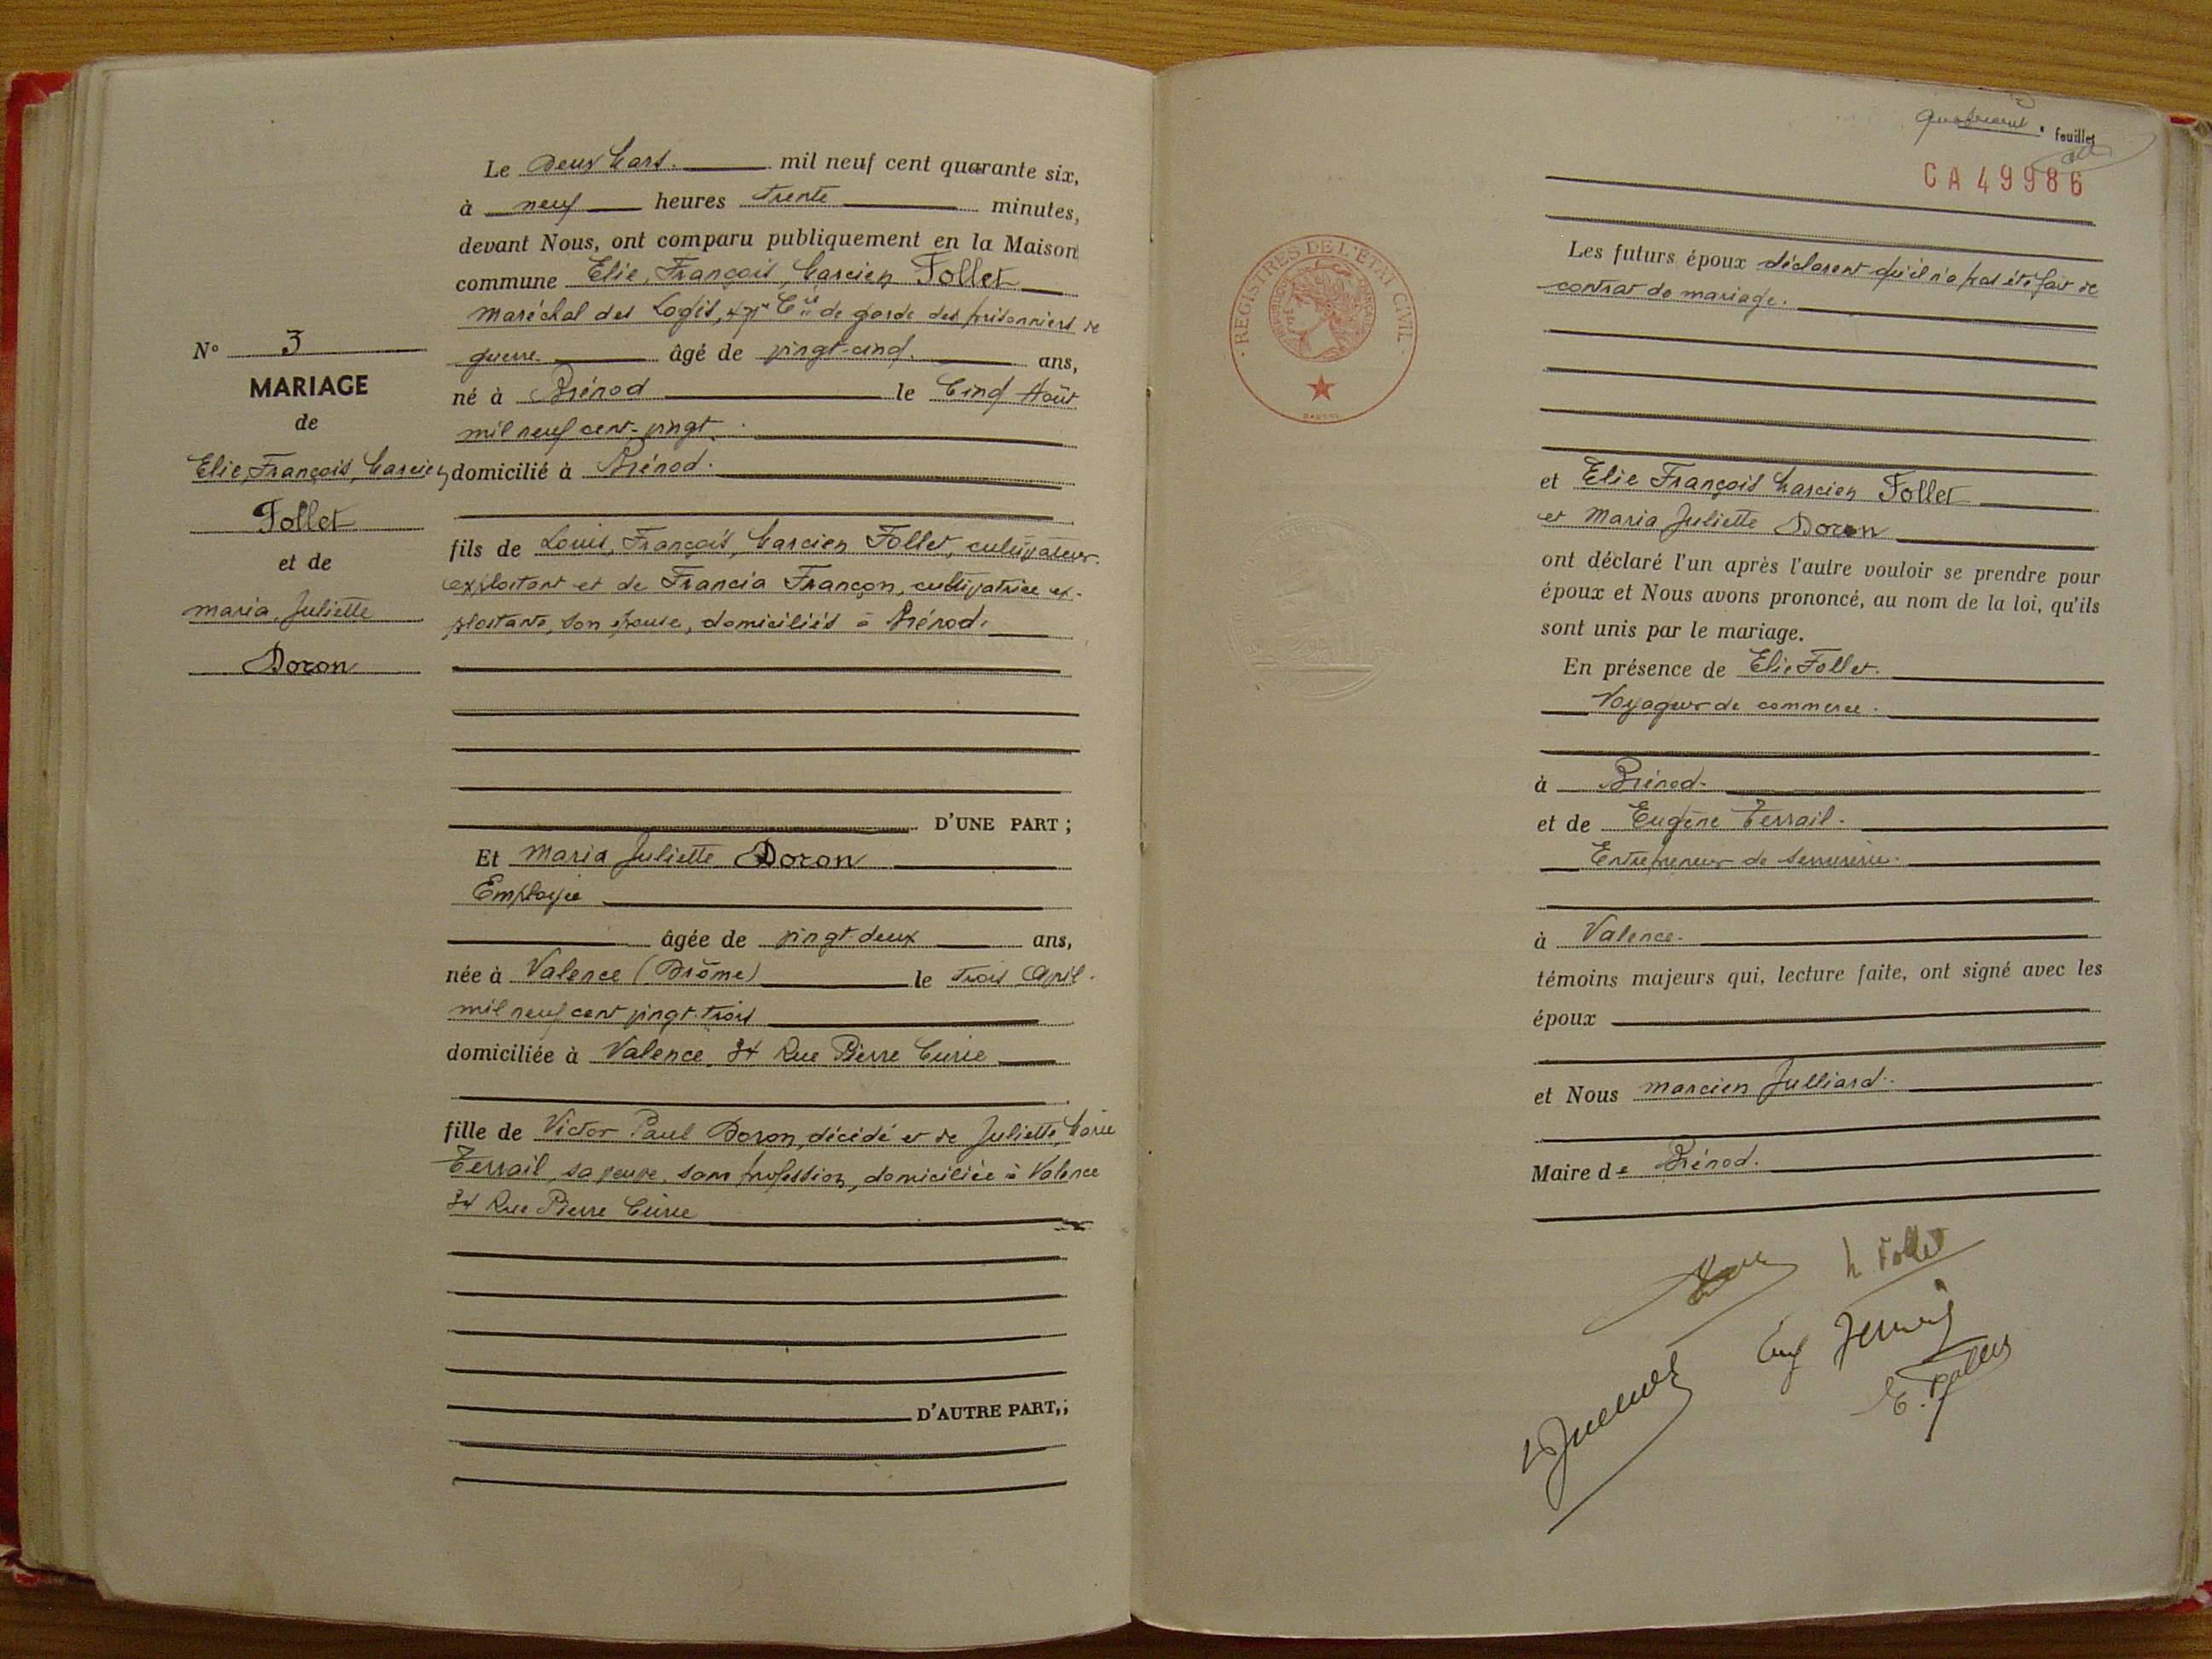 Le Deux Mars. mil neuf cent quarante six,
à neuf heures trente minutes,
devant Nous, ont comparu publiquement en la Maison
commune Elie, François, Marcien Follet
Maréchal des Logis, Cie de garde des prisonniers de
guerre. âgé de vingt-cinq. ans,
né à Brénod le Cinq Août
mil neuf cent-vingt.
domicilié à Brénod.
fils de Louis, François, Marcien Follet, cultivateur.
exploitant et de Francia Françon, cultivatrice ex-
ploitante, son épouse, domiciliés à Brénod.
D'UNE PART ;
Et Maria Juliette Doron
Employée
âgée de vingt-deux ans,
née à Valence (Drôme) le trois Avril.
mil neuf cent vingt-trois
domiciliée à Valence, 34 Rue Pierre Curie
fille de Victor Paul Doron, décédé et de Juliette, Marie
Terrail, sa veuve, sans profession, domiciliée à Valence
34 Rue Pierre Curie
D'AUTRE PART,;
N° 3
MARIAGE
de
Elie, François, Marcien
Follet
et de
Maria, Juliette
Doron
feuillet
CA 49986
REGISTRES DE L'ÉTAT CIVIL
Les futurs époux déclarent qu'il n'a pas été fait de
contrat de mariage.
et Elie François Marcien Follet
et Maria Juliette Doron
ont déclaré l'un après l'autre vouloir se prendre pour
époux et Nous avons prononcé, au nom de la loi, qu'ils
sont unis par le mariage.
En présence de Elie Follet.
Voyageur de commerce.
à Brénod.
et de Eugène Terrail.
Entrepreneur de serrurerie.
à Valence.
témoins majeurs qui, lecture faite, ont signé avec les
époux
et Nous Marcien Julliard.
Maire de Brénod.
Follet